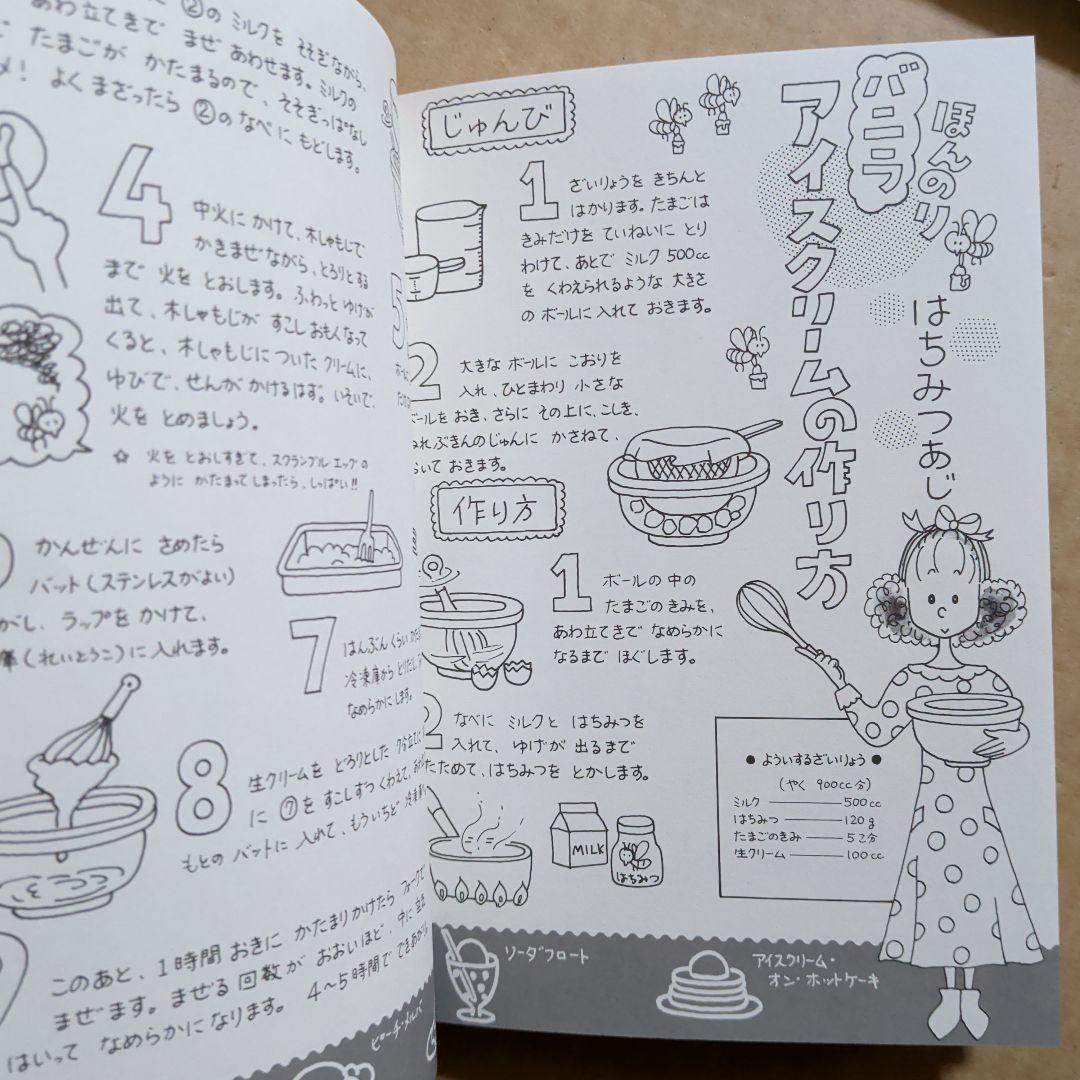 ほんのり
はちみつあじ
バニラ
アイスクリームの作り方
じゅんび
1
ざいりょうを きちんと
はかります。たまごは
きみだけを ていねいに とり
わけて、あとで ミルク 500cc
を くわえられるような 大きさ
の ボールに入れて おきます。
2
大きな ボールに こおりを
入れ、ひとまわり 小さな
ボールを おき、さらに その上に、こしき、
ぶきんのじゅんに かさねて、
おきます。
作り方
1
ボールの 中の
たまごのきみを、
あわ立てきで なめらかに
なるまで ほぐします。
2
なべに ミルクと はちみつを
入れて、ゆげが 出るまで
たためて、はちみつを とかします。
MILK
はちみつ
● よういするざいりょう ●
(やく 900cc分)
ミルク 500cc
はちみつ 120g
たまごのきみ 5コ分
生クリーム 100cc
ソーダフロート
アイスクリーム・
オン・ホットケーキ
②の ミルクを そそぎながら、
あわ立てきで まぜ あわせます。ミルクの
たまごが かたまるので、そそぎっぱなし
メ! よくまざったら ②のなべに もどします。
4
中火に かけて、木しゃもじで
かきまぜながら、とろりとする
まで 火を とおします。ふわっと ゆげが
出て、木しゃもじが すこし おもくなって
くると、木しゃもじについた クリームに、
ゆびで、せんが かけるはず。いそいで、
火を とめましょう。
☆ 火を とおしすぎて、スクランブル エッグの
ように かたまって しまったら、しっぱい!!
5
かんぜんに さめたら
バット(ステンレスがよい)
がし、ラップを かけて、
庫(れいとうこ)に入れます。
7
はんぶんくらい
冷凍庫から とりだし
なめらかにします。
8
生クリームを どろりとした 7分立てに
に ⑦を すこしずつ くわえて、
もとの バットに 入れて、もういちど 冷凍
このあと、1時間 おきに かたまりかけたら フォークで
まぜます。まぜる 回数が おおいほど、中に 空
はいって なめらかに なります。4〜5時間で できあがり
ピーチ・メルバ